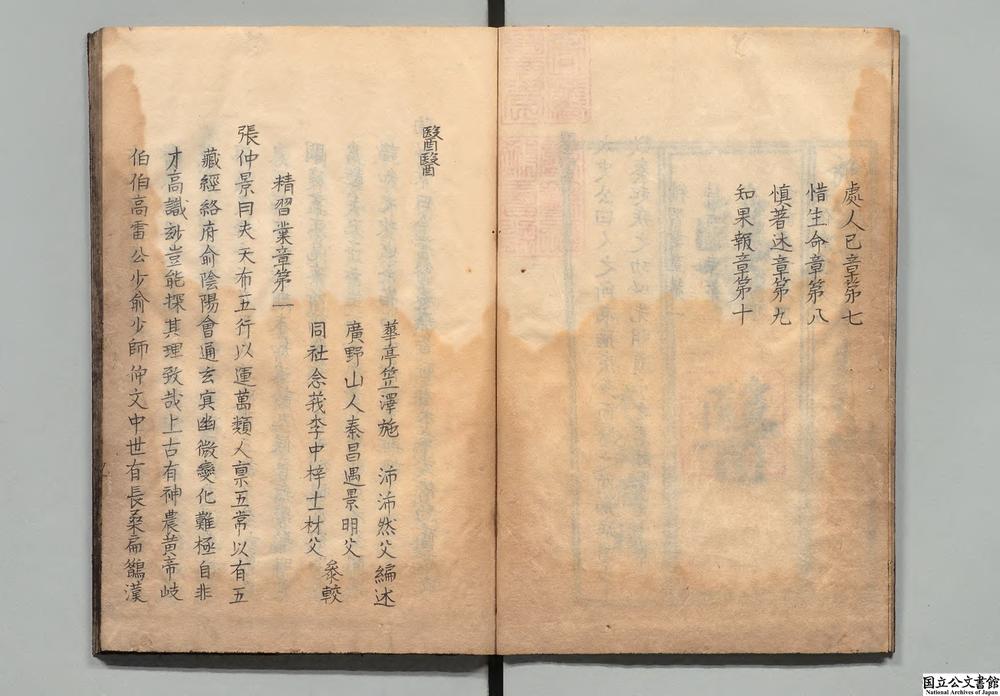 處人已章第七
惜生命章第八
慎著述章第九
知果報章第十
醫醫
華亭笠澤施 沛沛然父編述
廣野山人秦昌遇景明父
同社念莪李中梓士材父 叅較
精習業章第一
張仲景曰夫天布五行以運萬類人禀五常以有五
藏經絡府俞陰陽會通玄冥幽微變化難極自非
才高識玅豈能探其理致哉上古有神農黄帝岐
伯伯高雷公少俞少師仲文中世有長桑扁鵲漢
国立公文書館
National Archives of Japan